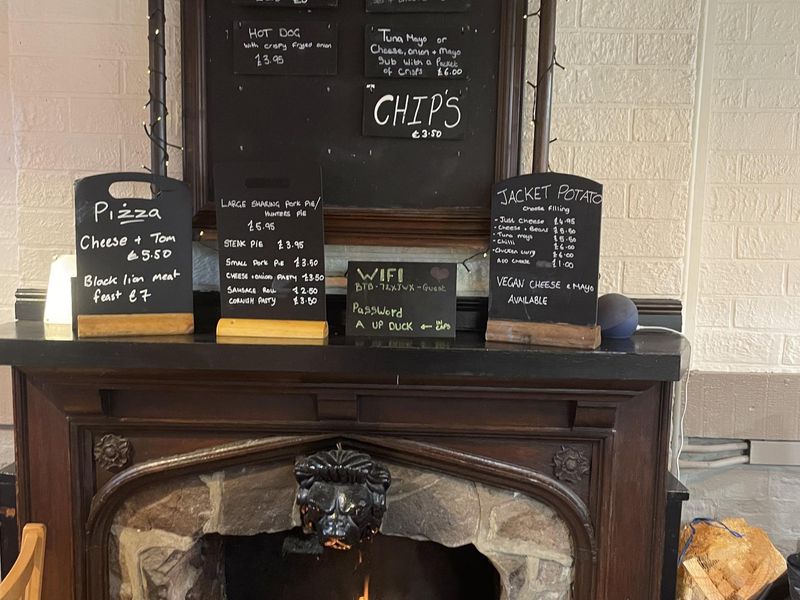 HOT DOG
with crispy fryed onion
£3.95
Tuna Mayo or
Cheese, onion + Mayo
Sub with a Packet
of crisps £6.00
CHIP'S
£3.50
Pizza
Cheese + Tom
£5.50
Black lion meat
feast £7
LARGE SHARING PORK PIE/
HUNTERS PIE
£5.95
STEAK PIE £3.95
SMALL PORK PIE £3.50
CHEESE + ONION PASTY £3.50
SAUSAGE ROLL £2.50
CORNISH PASTY £3.50
WIFI
BTB-72XJWX-Guest
PassWord
A UP DUCK ← IN CAPS
JACKET POTATO
Choose filling
- Just cheese £4.95
- Cheese + Beans £5.50
- Tuna mayo £5.50
- Chilli £6.00
- Chicken curry £6.00
ADD CHEESE £1.00
VEGAN CHEESE + MAYO
AVAILABLE